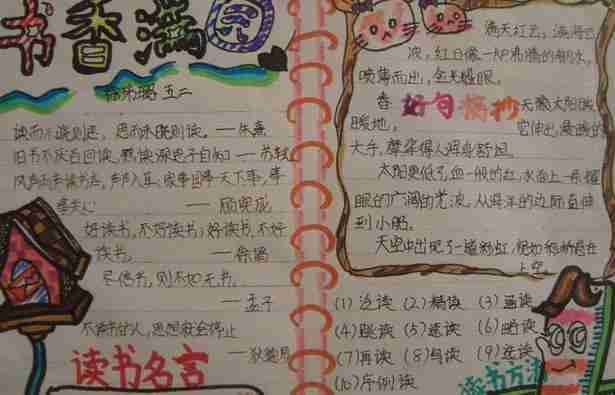 书香满园
五二
读而未晓则思，思而未晓则读。——朱熹
旧书不厌百回读，熟读深思子自知——苏轼
风声雨声读书声，声声入耳，家事国事天下事，事
事关心 ——顾宪成
好读书，不好读书；好读书，不好
读书。 ——徐渭
尽信书，则不如无书。
——孟子
不读书的人，思想就会停止
——狄德罗
读书名言
满天红云，满海金
波，红日像一炉沸腾的钢水，
喷薄而出，金光耀眼。
好句摘抄
春天的太阳
暖暖地，它伸出
大手，摩挲得人浑身舒坦。
太阳更低了，血一般的红，水面上一条耀
眼的广阔的光波，从海洋的边际直伸
到小船。
天空中出现了一道彩虹，
上空。
(1) 泛读 (2) 精读 (3) 通读
(4) 跳读 (5) 速读 (6) 略读
(7) 再读 (8) 写读 (9)
(10) 序例读
读书方法